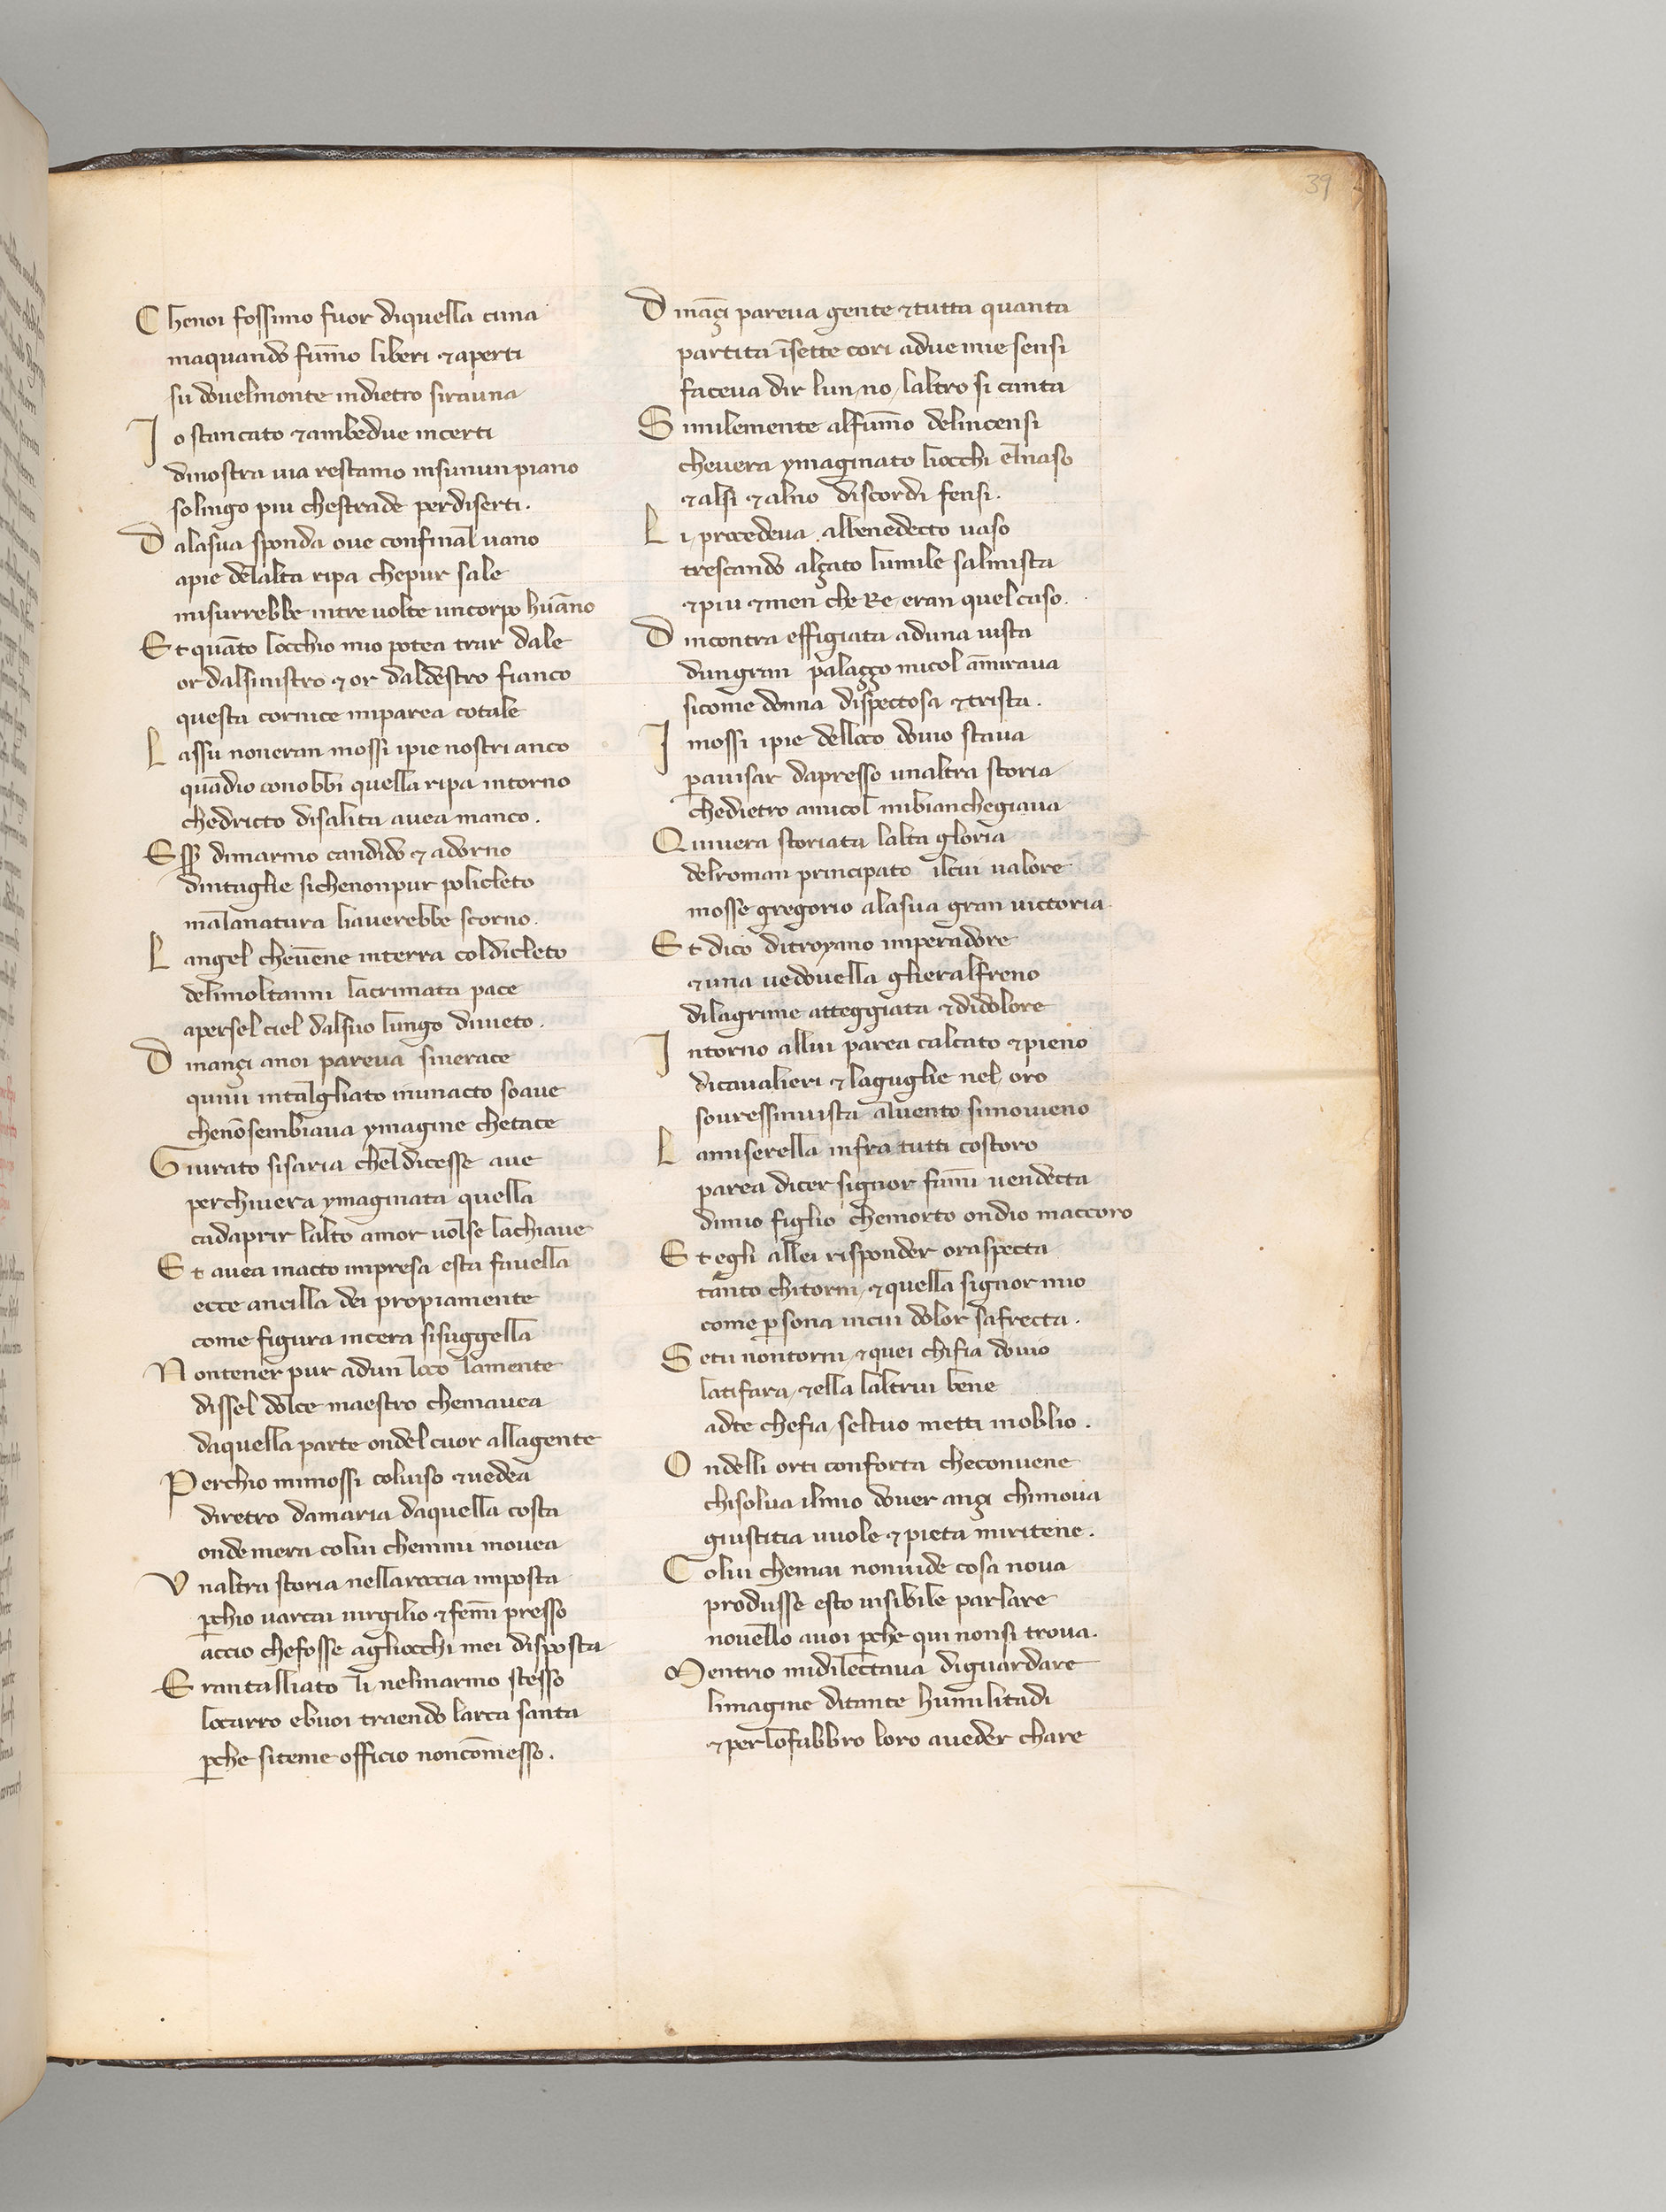 39
C henoi fossimo fuor diquella cuna
maquando fum̄o liberi ⁊ aperti
su douelmonte indietro sirauna
I o stancato ⁊ ambedue incerti
dinostra uia restamo insunun piano
solingo piu chestrade perdiserti.
D alasua sponda oue confinal uano
apie delalta ripa chepur sale
misurrebbe intre uolte uncorpo huāno
E t quāto locchio mio potea trar dale
or dalsinistro ⁊ or daldestro fianco
questa cornice miparea cotale
L assu noneran mossi ipie nostri anco
quādio conobbi quella ripa intorno
chedricto disalita auea manco.
E ss̄ dimarmo candido ⁊ adorno
dintaglie sichenonpur policleto
malanatura liauerebbe scorno.
L angel cheuēne interra coldicleto
delimoltanni lacrimata pace
apersel ciel dalsuo lungo diuieto.
D inanҫi anoi pareua siuerace
quiui intalgliato inunacto soaue
chenōsembiaua ymagine chetace
G iurato sisaria cheldicesse aue
perchiuera ymaginata quella
cadaprir lalto amor uolse lachiaue
E t auea inacto impresa esta fauella
ecce ancilla dei propiamente
come figura incera sisuggella
N ontener pur adun loco lamente
dissel dolce maestro chemauea
daquella parte ondel cuor allagente
P erchio mimossi coluiso ⁊ uedea
diretro damaria daquella costa
ondemera colui chemmi mouea
V naltra storia nellaroccia imposta
ꝑchio uarcai uirgilio ⁊ femī presso
accio chefosse agliocchi mei disposta
E rantalliato li nelmarmo stesso
locarro ebuoi traendo larca santa
ꝑche siteme officio noncōmesso.
D ināҫi pareua gente ⁊ tutta quanta
partita īsette cori adue mie sensi
faceua dir lun / no / laltro si canta
S imilemente alfum̄o delincensi
cheuera ymaginato liocchi elnaso
⁊ alsi ⁊ alno discordi fensi.
L i procedeua albenedecto uaso
trescando alҫato lumile salmista
⁊ piu ⁊ men che Re eran quel caso.
D incontra effigiata aduna uista
dungran palaҫҫo micol am̄iraua
sicome donna dispectosa ⁊ trista.
I mossi ipie delloco douio staua
ꝑauisar dapresso unaltra storia
chedietro amicol mibianchegiaua
Q uiuera storiata lalta gloria
delroman principato ilcui ualore
mosse gregorio alasua gran uictoria
E t dico ditroyano imperadore
⁊ una uedouella glieralfreno
dilagrime atteggiata ⁊ didolore
I ntorno allui parea calcato ⁊ pieno
dicaualieri ⁊ laguglie nel oro
souressinuista aluento simouieno
L amiserella infra tutti costoro
parea dicer signor fam̄i uendecta
dimio figlio chemorto ondio maccoro
E t egli allei risponder oraspecta
tanto chitorni ⁊ quella signor mio
come ꝑsona incui dolor safrecta.
S etu nontorni ⁊ quei chifia douio
latifara ⁊ ella laltrui bene
adte chefia seltuo metti inoblio.
O ndelli orti conforta checonuene
chisolua ilmio douer anҫi chimoua
giustitia uuole ⁊ pieta miritene.
C olui chemai nonuide cosa noua
produsse esto uisibile parlare
nouello anoi ꝑche qui nonsi troua.
M entrio midilectaua diguardare
limagine ditante humilitadi
⁊ perlofabbro loro aueder chare